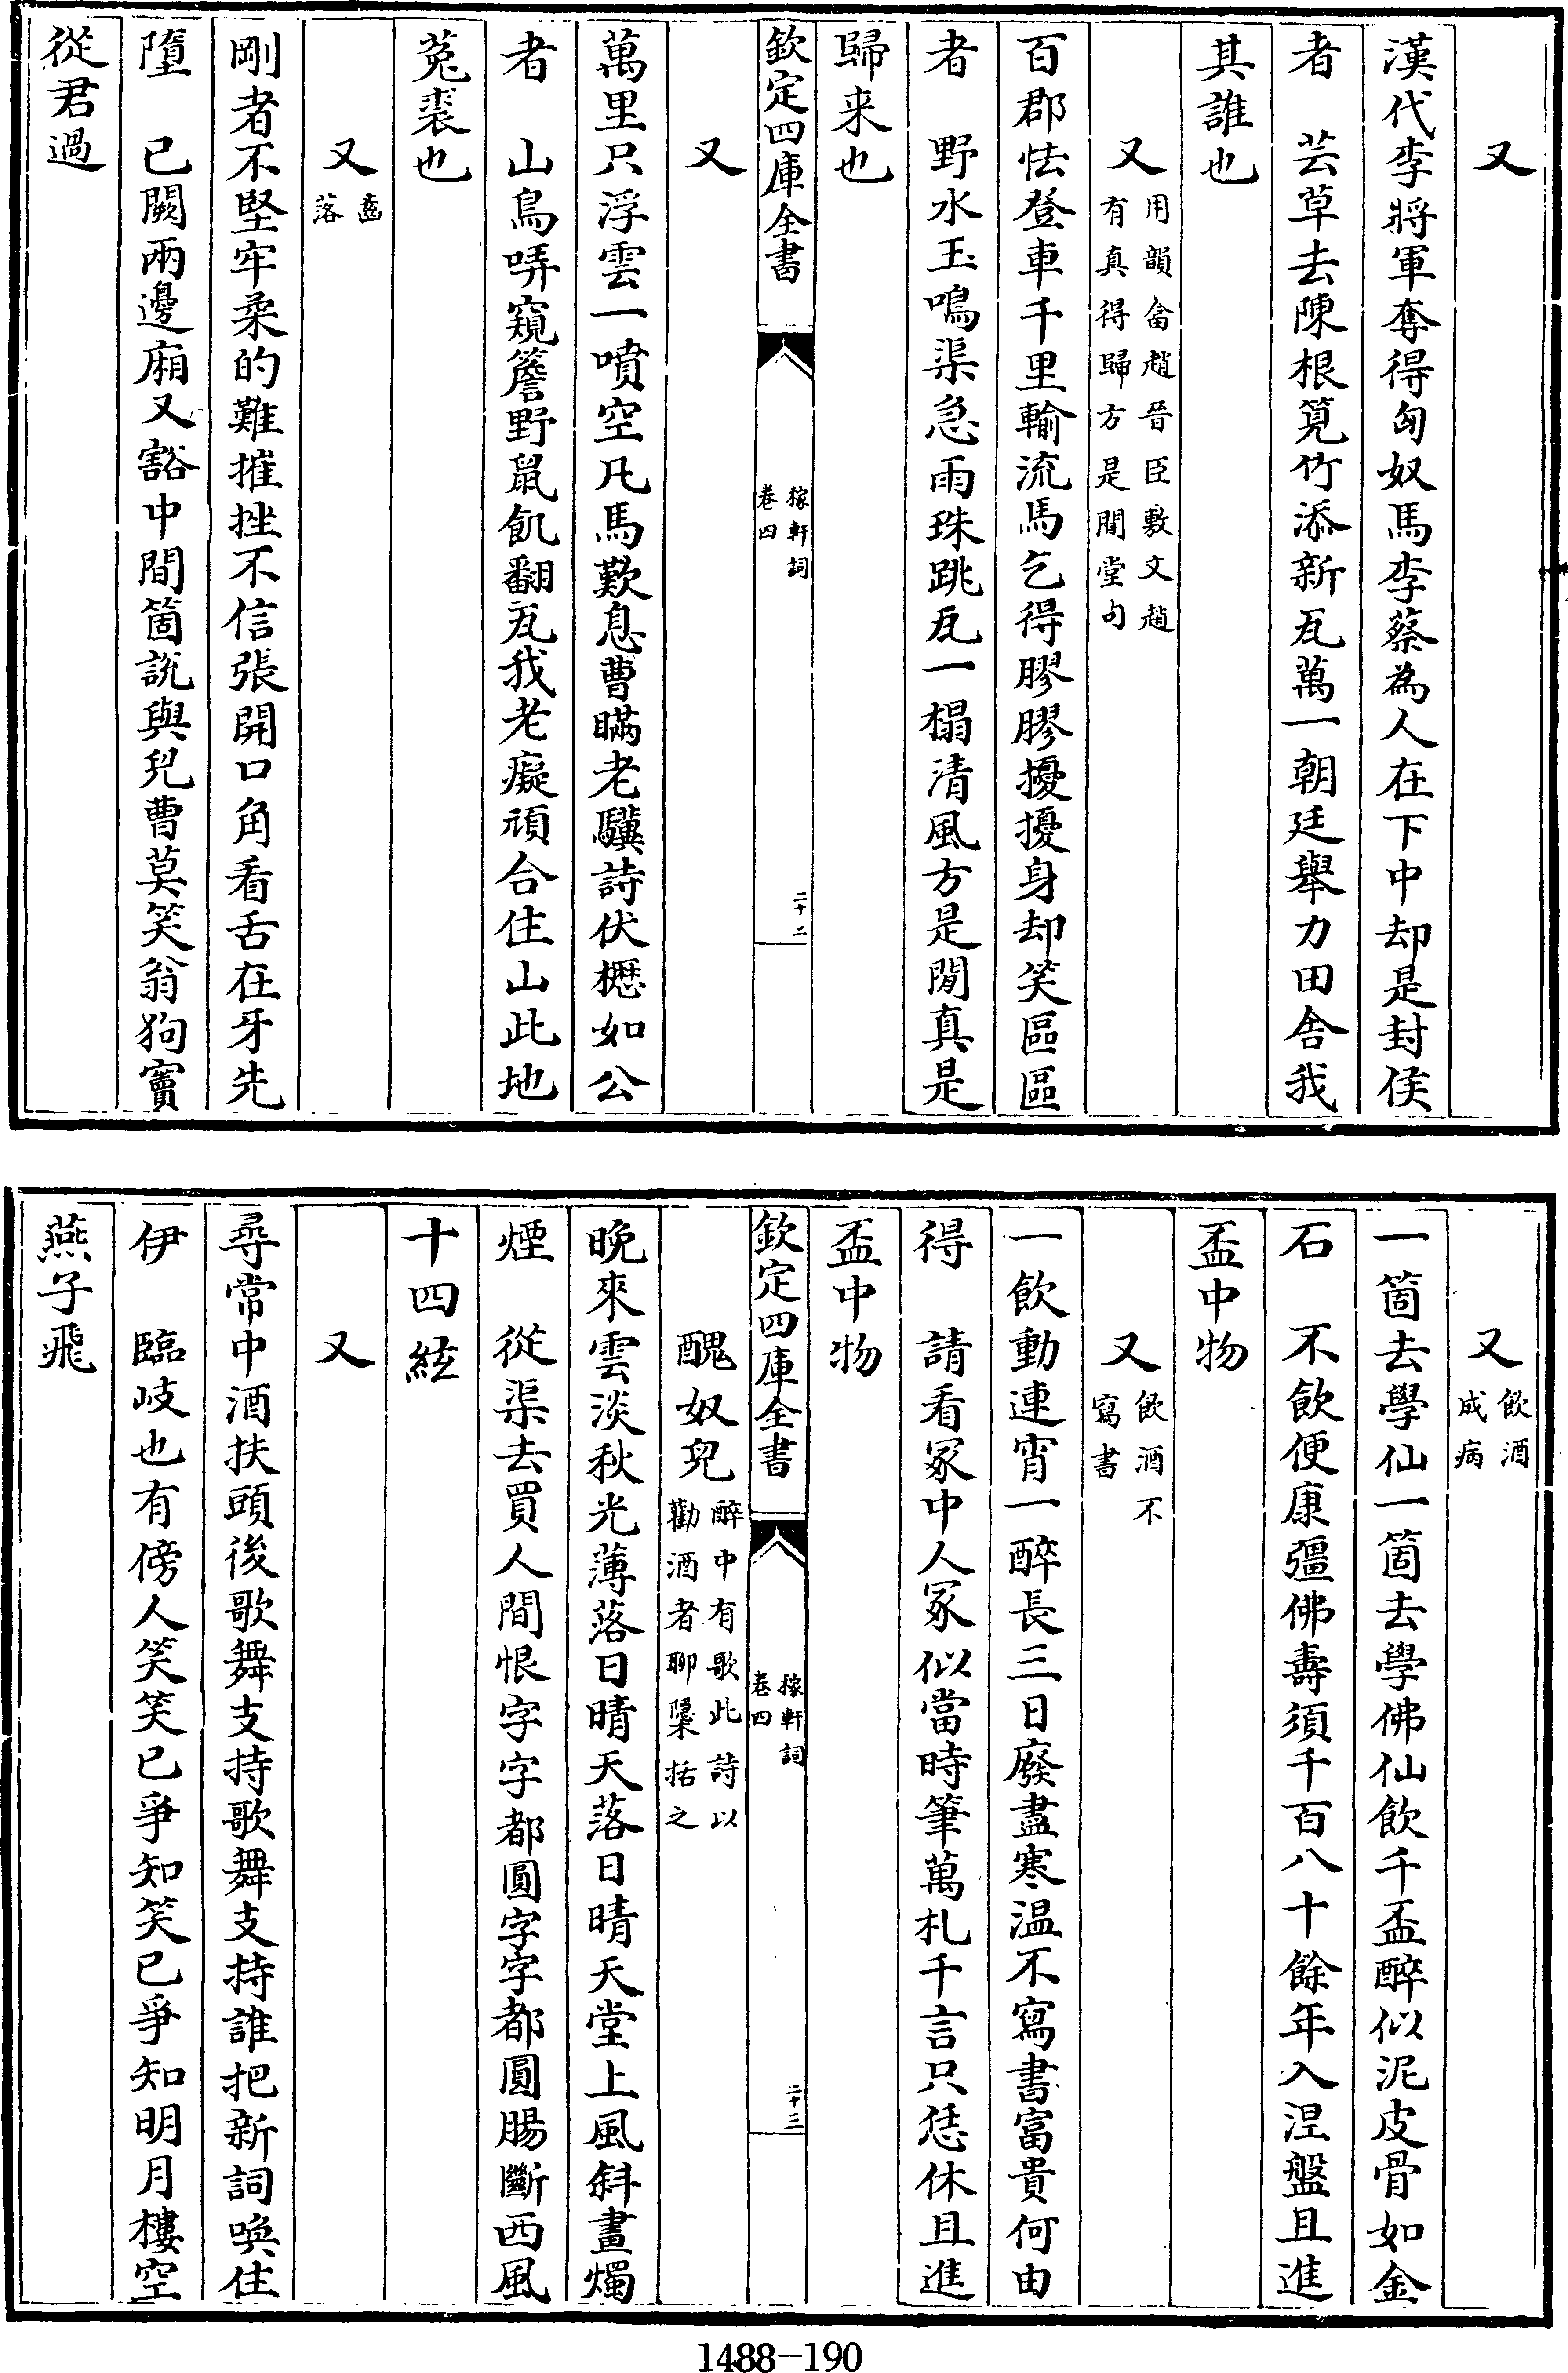 又
漢代李將軍奪得匈奴馬李蔡為人在下中却是封侯
者　芸草去陳根筧竹添新瓦萬一朝廷舉力田舎我
其誰也
又用韻畲趙晉臣敷文趙
有真得歸方是閒堂句
百郡怯登車千里輸流馬乞得膠膠擾擾身却笑區區
者　野水玉鳴渠急雨珠跳瓦一榻清風方是閒真是
歸来也
欽定四庫全書
稼軒詞
卷四
二十二
又
萬里只浮雲一噴空凡馬歎息曹瞞老驥詩伏櫪如公
者　山鳥哢窺簷野鼠飢翻瓦我老癡頑合住山此地
菟裘也
又齒
落
剛者不堅牢柔的難摧挫不信張開口角看舌在牙先
墮　已闕兩邊廂又豁中間箇説與兒曹莫笑翁狗竇
從君過
又飲酒
成病
一箇去學仙一箇去學佛仙飲千盃醉似泥皮骨如金
石　不飲便康彊佛壽須千百八十餘年入涅盤且進
盃中物
又飲酒不
寫書
一飲動連宵一醉長三日廢盡寒温不寫書富貴何由
得　請看冢中人冢似當時筆萬札千言只恁休且進
盃中物
欽定四庫全書
稼軒詞
卷四
二十三
醜奴兒醉中有歌此詩以
勸酒者聊櫽括之
晚來雲淡秋光薄落日晴天落日晴天堂上風斜畫燭
煙　從渠去買人間恨字字都圓字字都圓腸斷西風
十四絃
又
尋常中酒扶頭後歌舞支持歌舞支持誰把新詞喚住
伊　臨岐也有傍人笑笑已爭知笑已爭知明月樓空
燕子飛
1488-190